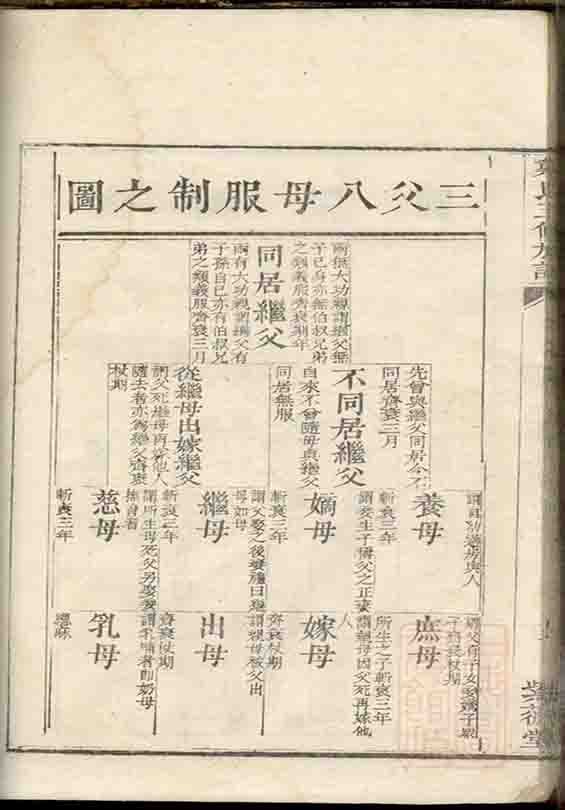 三父八母服制之圖
同居繼父
兩無大功親謂繼父無
子已身亦無伯叔兄弟
之類義服齊衰期年
兩有大功親謂繼父有
子孫自已亦有伯叔兄
弟之類義服齊衰三月
不同居繼父
先曾與繼父同居今不
同居齊衰三月
自來不曾隨母與繼父
同居無服
從繼母出嫁繼父
謂父死繼母再嫁他人
隨去者亦為繼父齊衰
杖期
養母
謂自幼過房與人
斬衰三年
嫡母
謂妾生子稱父之正妻
斬衰三年
繼母
謂父娶之後妻禮曰繼
母如母
斬衰三年
慈母
謂所生母死父另娶妾
撫育者
斬衰三年
庶母
所生之子斬衰三年
嫁母
謂親母因父死再嫁他
人
齊衰杖期
出母
謂親母被父出
齊衰杖期
乳母
謂乳哺者即奶母
緦麻